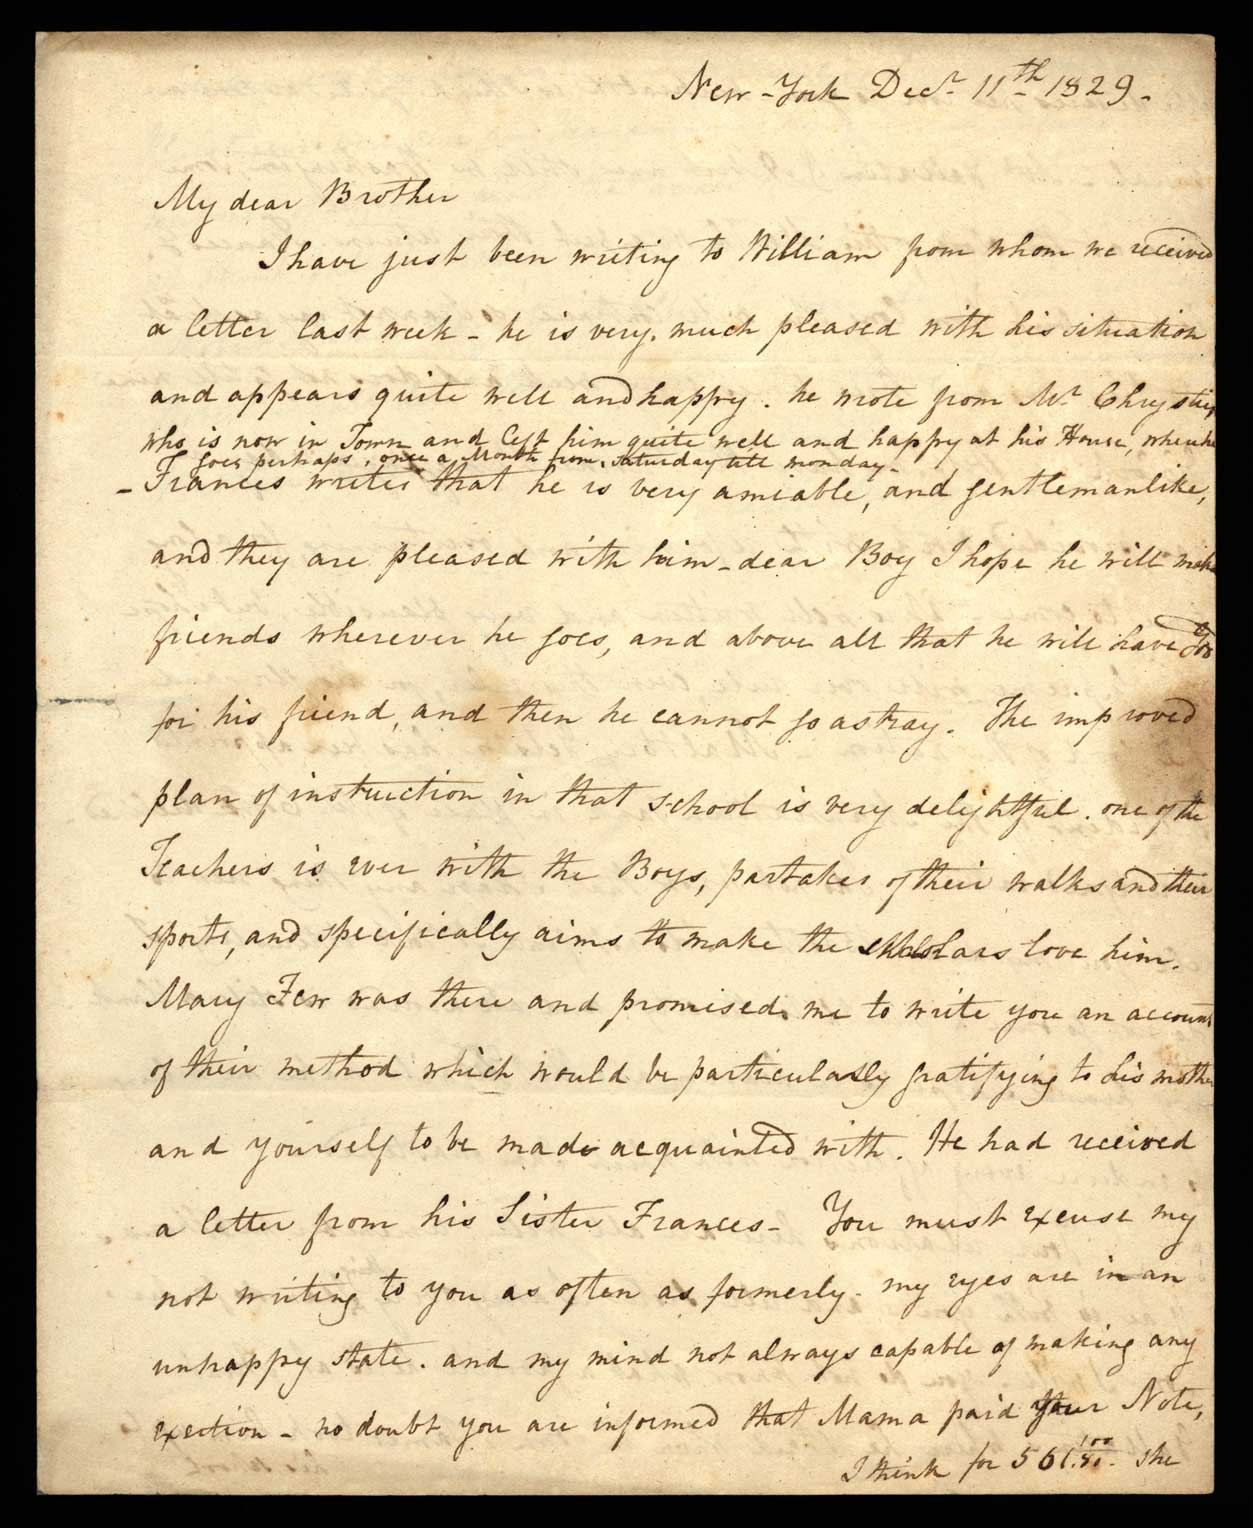 New-York Decr. 11th 1829.
My dear Brother
I have just been writing to William from whom we received
a letter last week - he is very much pleased with his situation
and appears quite well and happy. he wrote from Mr. Chrystie
who is now in Town and left him quite well and happy at his House, where he
goes perhaps, once a Month from Saturday till monday -
- Frances writes that he is very amiable, and gentlemanlike,
and they are pleased with him - dear Boy I hope he will make
friends wherever he goes, and above all that he will have God
for his friend, and then he cannot go astray. The improved
plan of instruction in that school is very delightful. one of the
Teachers is ever with the Boys, partakes of their walks and their
sports, and specifically aims to make the scholars love him.
Mary Few was there and promised me to write you an account
of their method which would be particularly gratifying to his mother
and yourself to be made acquainted with. He had received
a letter from his Sister Frances - You must excuse my
not writing to you as often as formerly - my eyes are in an
unhappy state. and my mind not always capable of making any
exertion - no doubt you are informed that Mama paid your Note,
I think for 561. she